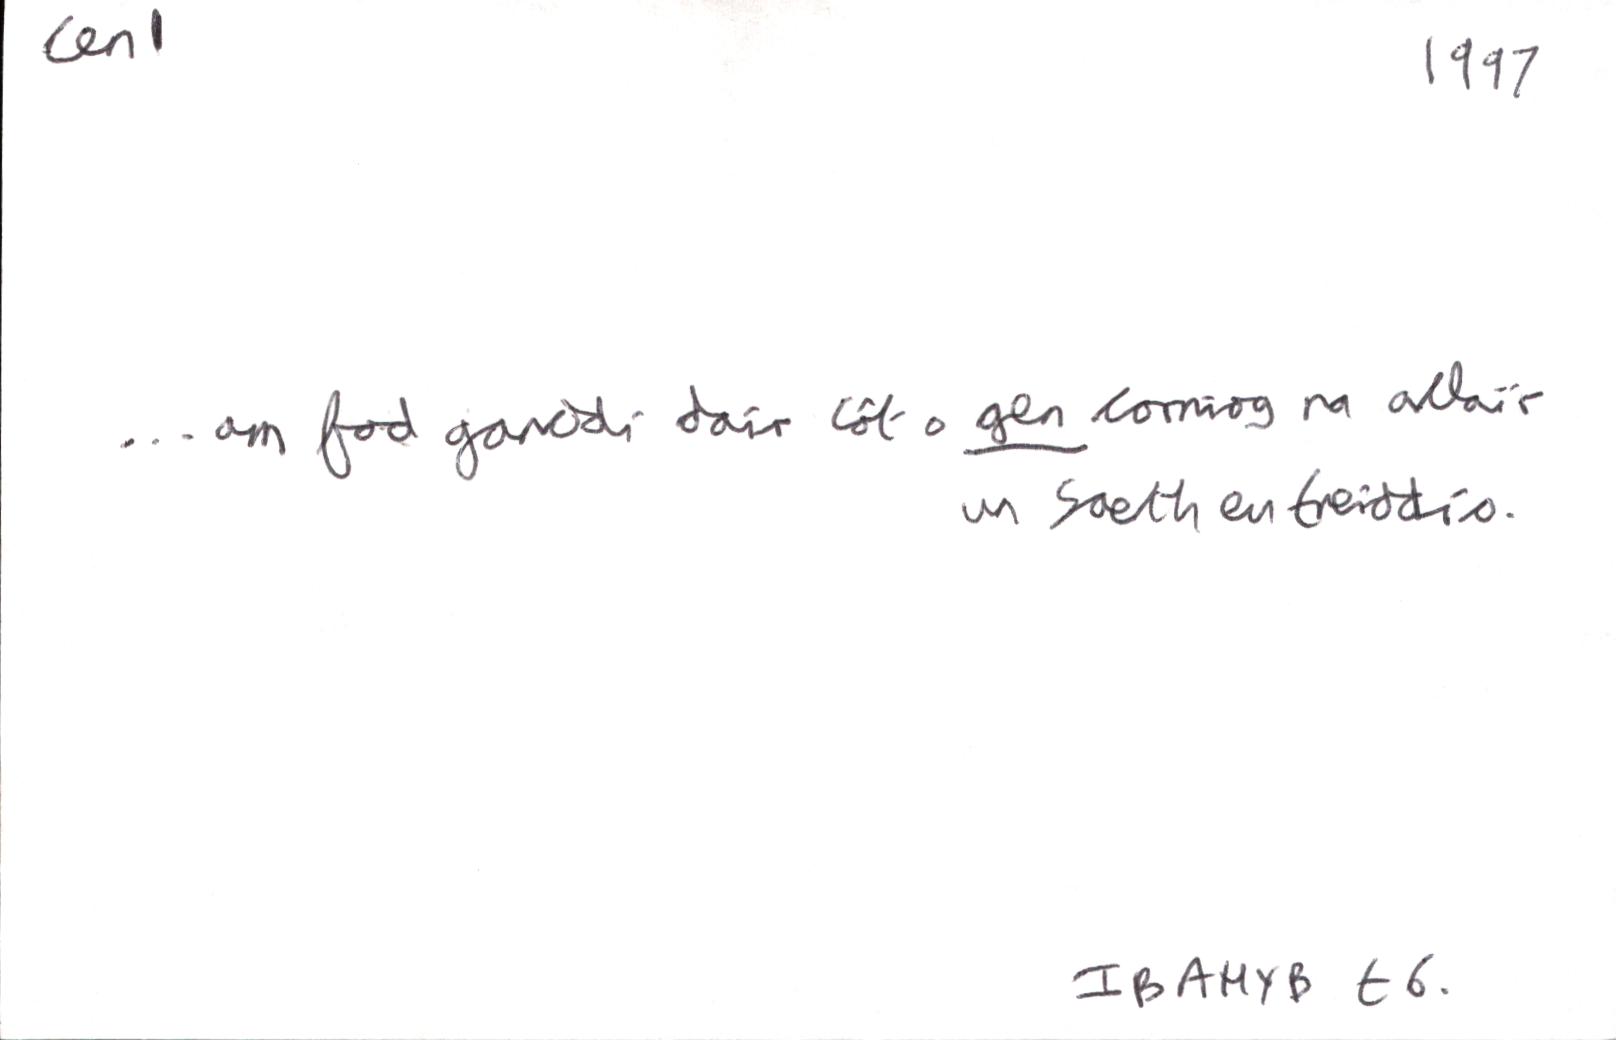 cen1
1997
... am fod ganddi dair côt o gen corniog na allai'r
un saeth eu treiddio.
IBAMYB t6.